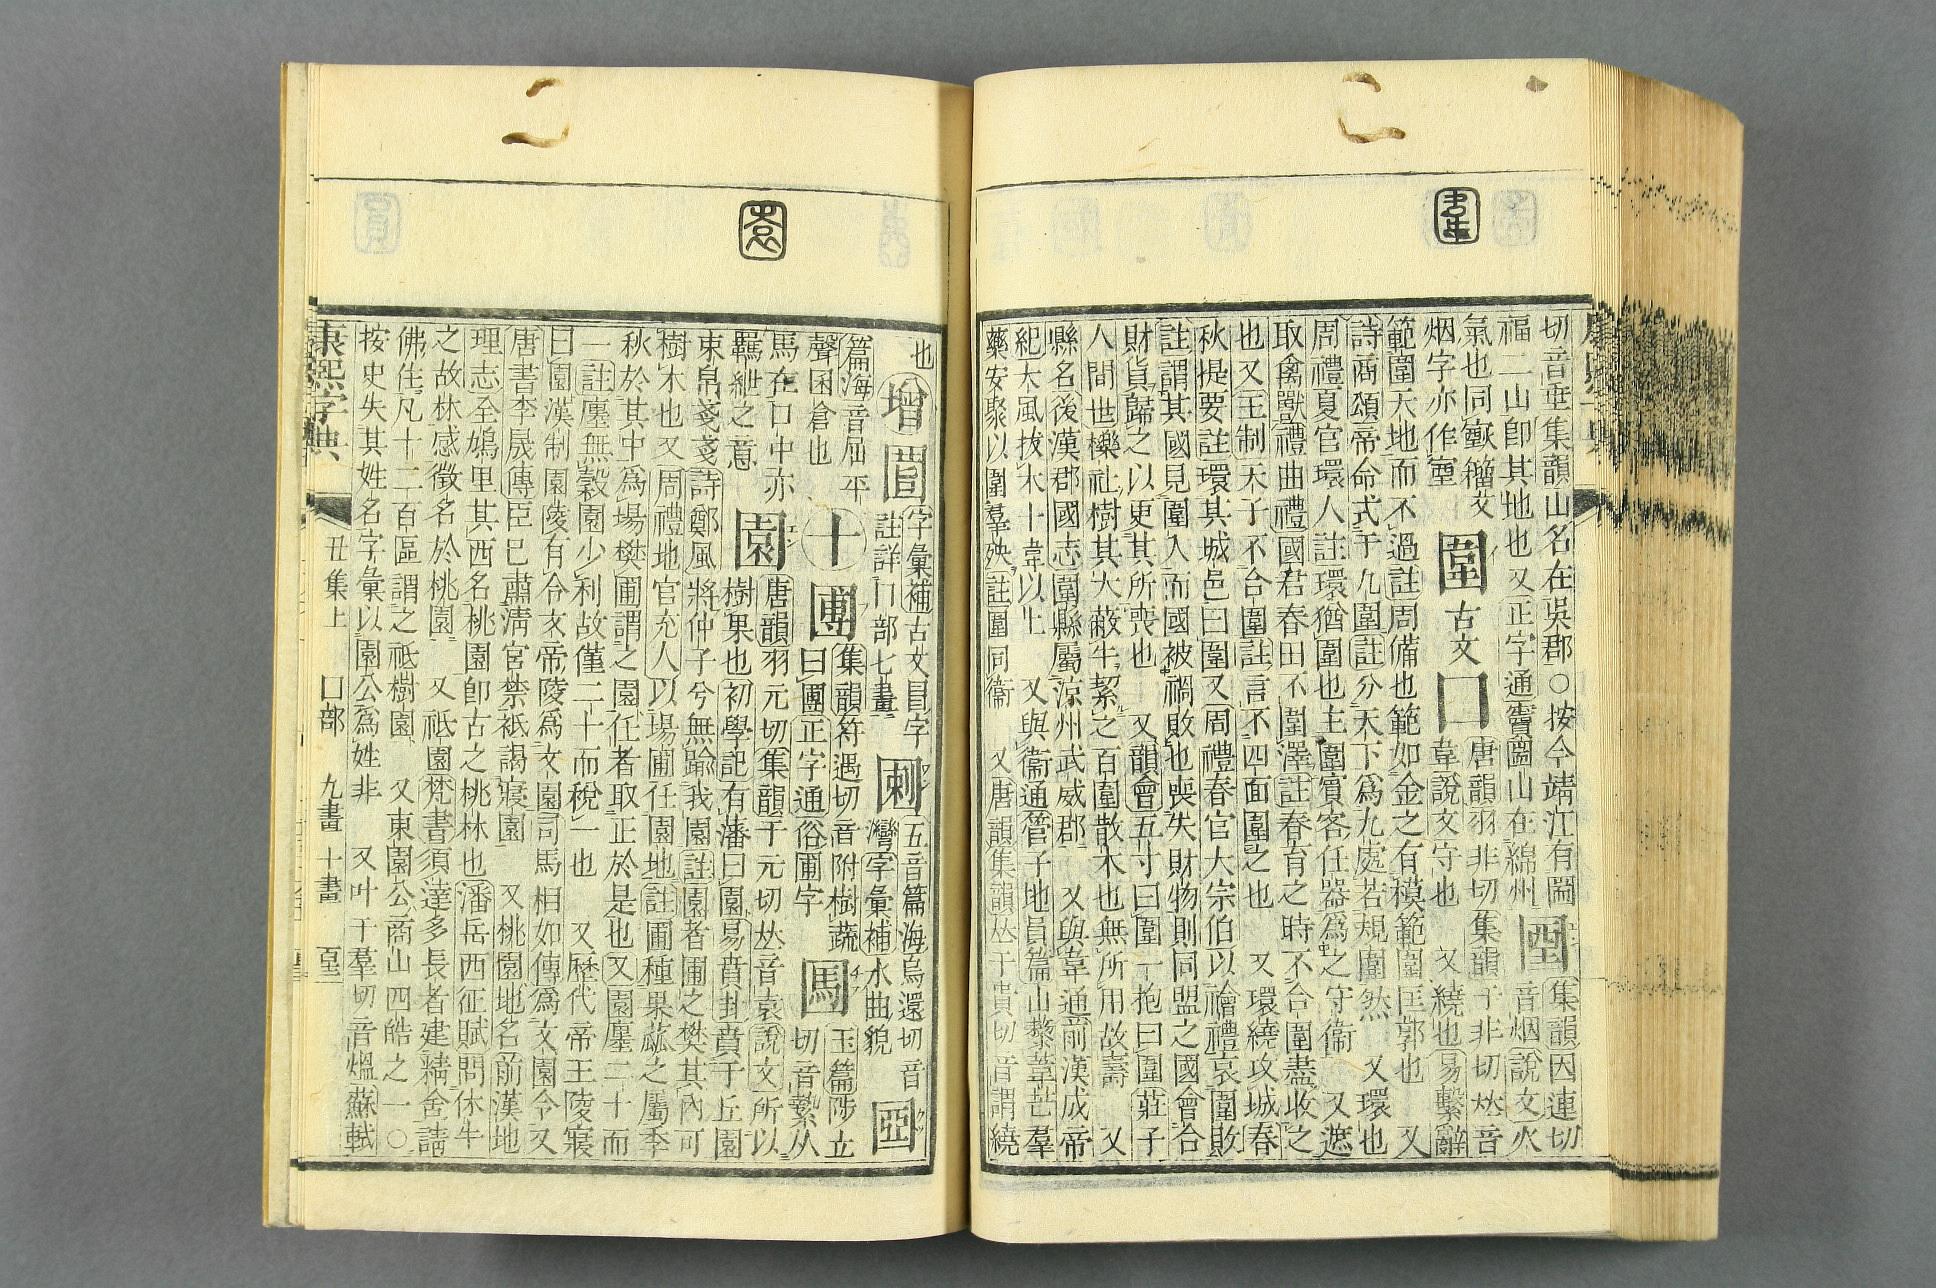 切音垂集韻山名在吳郡○按今靖江有圌
福二山卽其地也又正字通竇圌山在綿州
集韻因連切
音烟說文火
氣也同
籀文
烟字亦作
圍
古文囗
唐韻羽非切集韻于非切𠀤音
韋說文守也 又繞也易繫辭
範圍天地而不過註周備也範如金之有模範圍匡郭也 又
詩商頌帝命式于九圍註分天下爲九處若規圍然 又環也
周禮夏官環人註環猶圍也主圍賓客任器爲之守衞 又遮
取禽獸禮曲禮國君春田不圍澤註春育之時不合圍盡收之
也又王制天子不合圍註言不四面圍之也 又環繞攻城春
秋提要註環其城邑曰圍又周禮春官大宗伯以禬禮哀圍敗
註謂其國見圍入而國被禍敗也喪失財物則同盟之國會合
財貨歸之以更其所喪也 又韻會五寸曰圍一抱曰圍莊子
人閒世櫟社樹其大蔽牛絜之百圍散木也無所用故壽 又
縣名後漢郡國志圍縣屬涼州武威郡 又與韋通前漢成帝
紀大風拔木十韋以上 又與衞通管子地員篇山藜葦芒羣
藥安聚以圍羣殃註圍同衞 又唐韻集韻𠀤于貴切音謂繞
也
增
字彙補古文目字
註詳冂部七畫
五音篇海烏還切音
灣字彙補水曲貌
篇海音屈平
聲囷倉也
十
圑
集韻符遇切音附樹蔬
曰圑正字通俗圃字
玉篇陟立
切音縶从
馬在囗中亦
羈紲之意
園
唐韻羽元切集韻于元切𠀤音袁說文所以
樹果也初學記有藩曰園易賁卦賁于丘園
束帛戔戔詩鄭風將仲子兮無踰我園註園者圃之樊其內可
樹木也又周禮地官充人以場圃任園地註圃種果蓏之屬季
秋於其中爲場樊圃謂之園任者取正於是也又園廛二十而
一註廛無穀園少利故僅二十而稅一也 又歷代帝王陵寢
曰園漢制園陵有令文帝陵爲文園司馬相如傳爲文園令又
唐書李晟傳臣已肅淸宮禁祗謁寢園 又桃園地名前漢地
理志全鳩里其西名桃園卽古之桃林也潘岳西征賦問休牛
之故林感徵名於桃園 又祇園梵書須達多長者建精舍請
佛住凡十二百區謂之祇樹園 又東園公商山四皓之一○
按史失其姓名字彙以園公爲姓非 又叶于羣切音熅蘇軾
康熙字典 丑集上 囗部 九畫 十畫